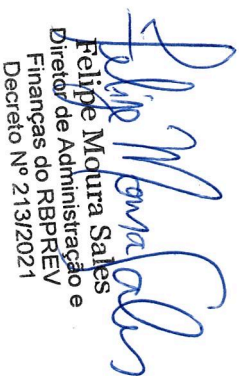 Felipe Moura Sales
Felipe Moura Sales
Diretor de Administração e
Finanças do RBPREV
Decreto Nº 213/2021